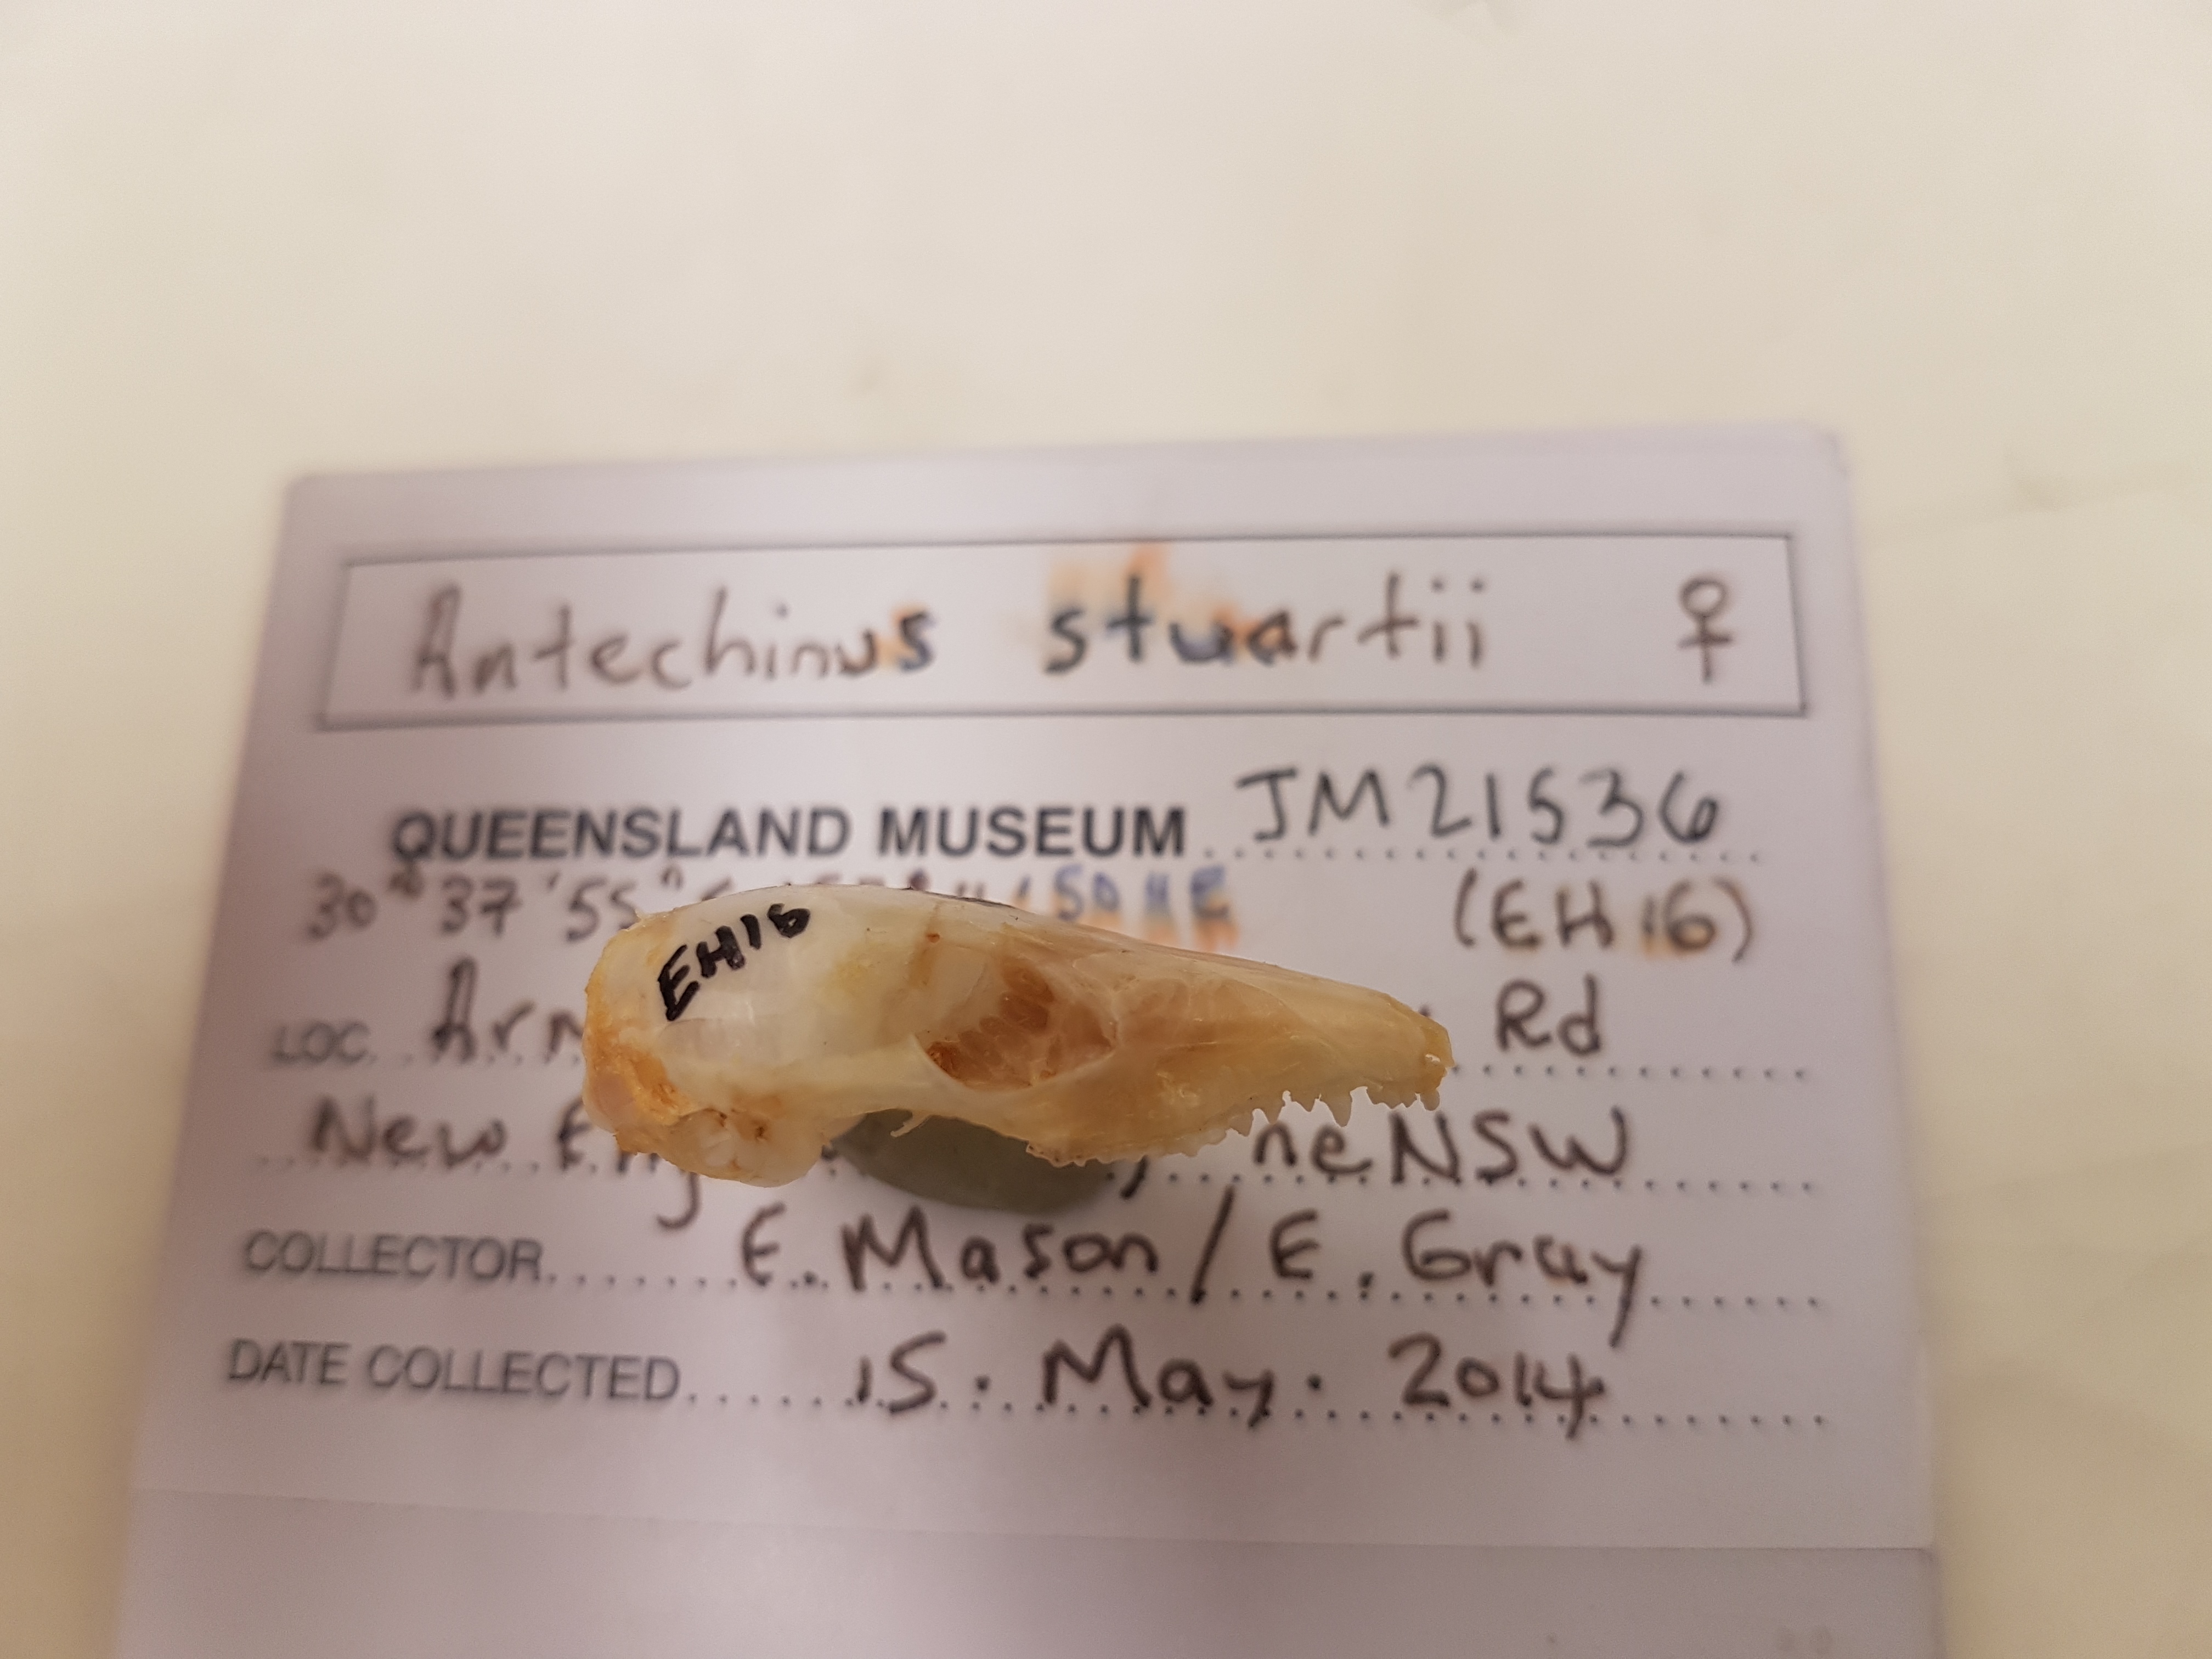 Antechinus stuartii ♀
QUEENSLAND MUSEUM JM21536
30° 37'55" (EH16)
LOC. Rd
New NSW
COLLECTOR. E. Mason / E. Gray
DATE COLLECTED. 15. May. 2014
EH16